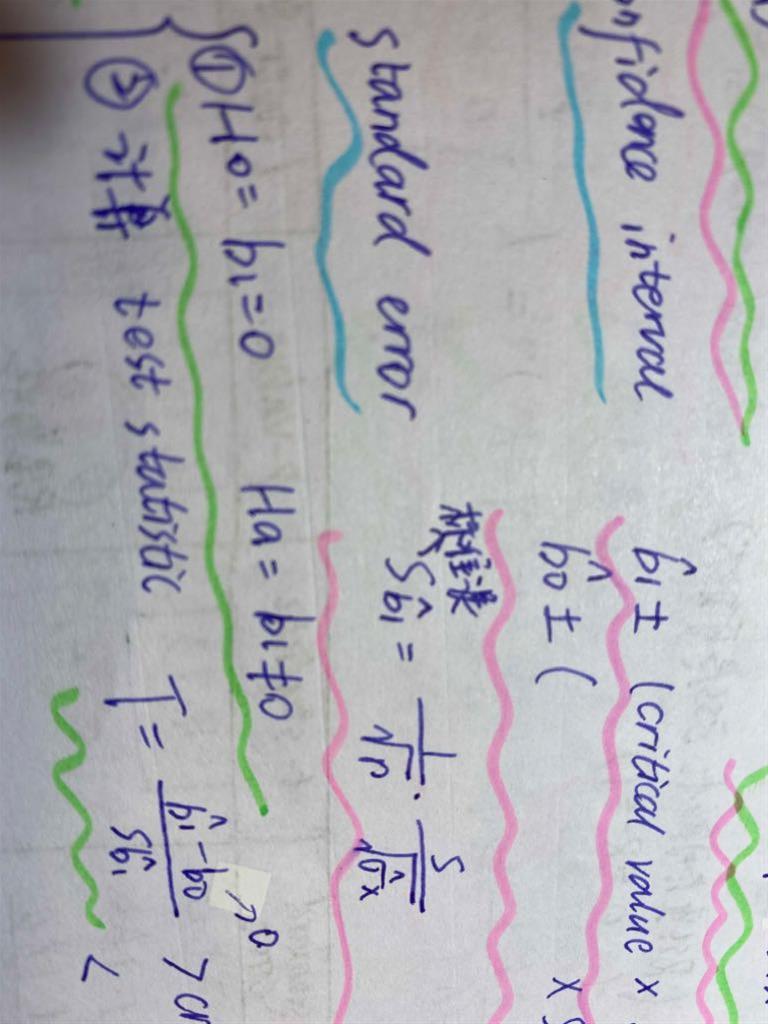 confidence interval
b̂1 ± (critical value ×
b̂0 ± ( ×
标准误
standard error Sb̂1 = 1/√n · S/√σ̂x
① H0 = b1 = 0 Ha = b1 ≠ 0
② test statistic T = (b̂1 - b0)/Sb̂1 > cr
→ 0
<